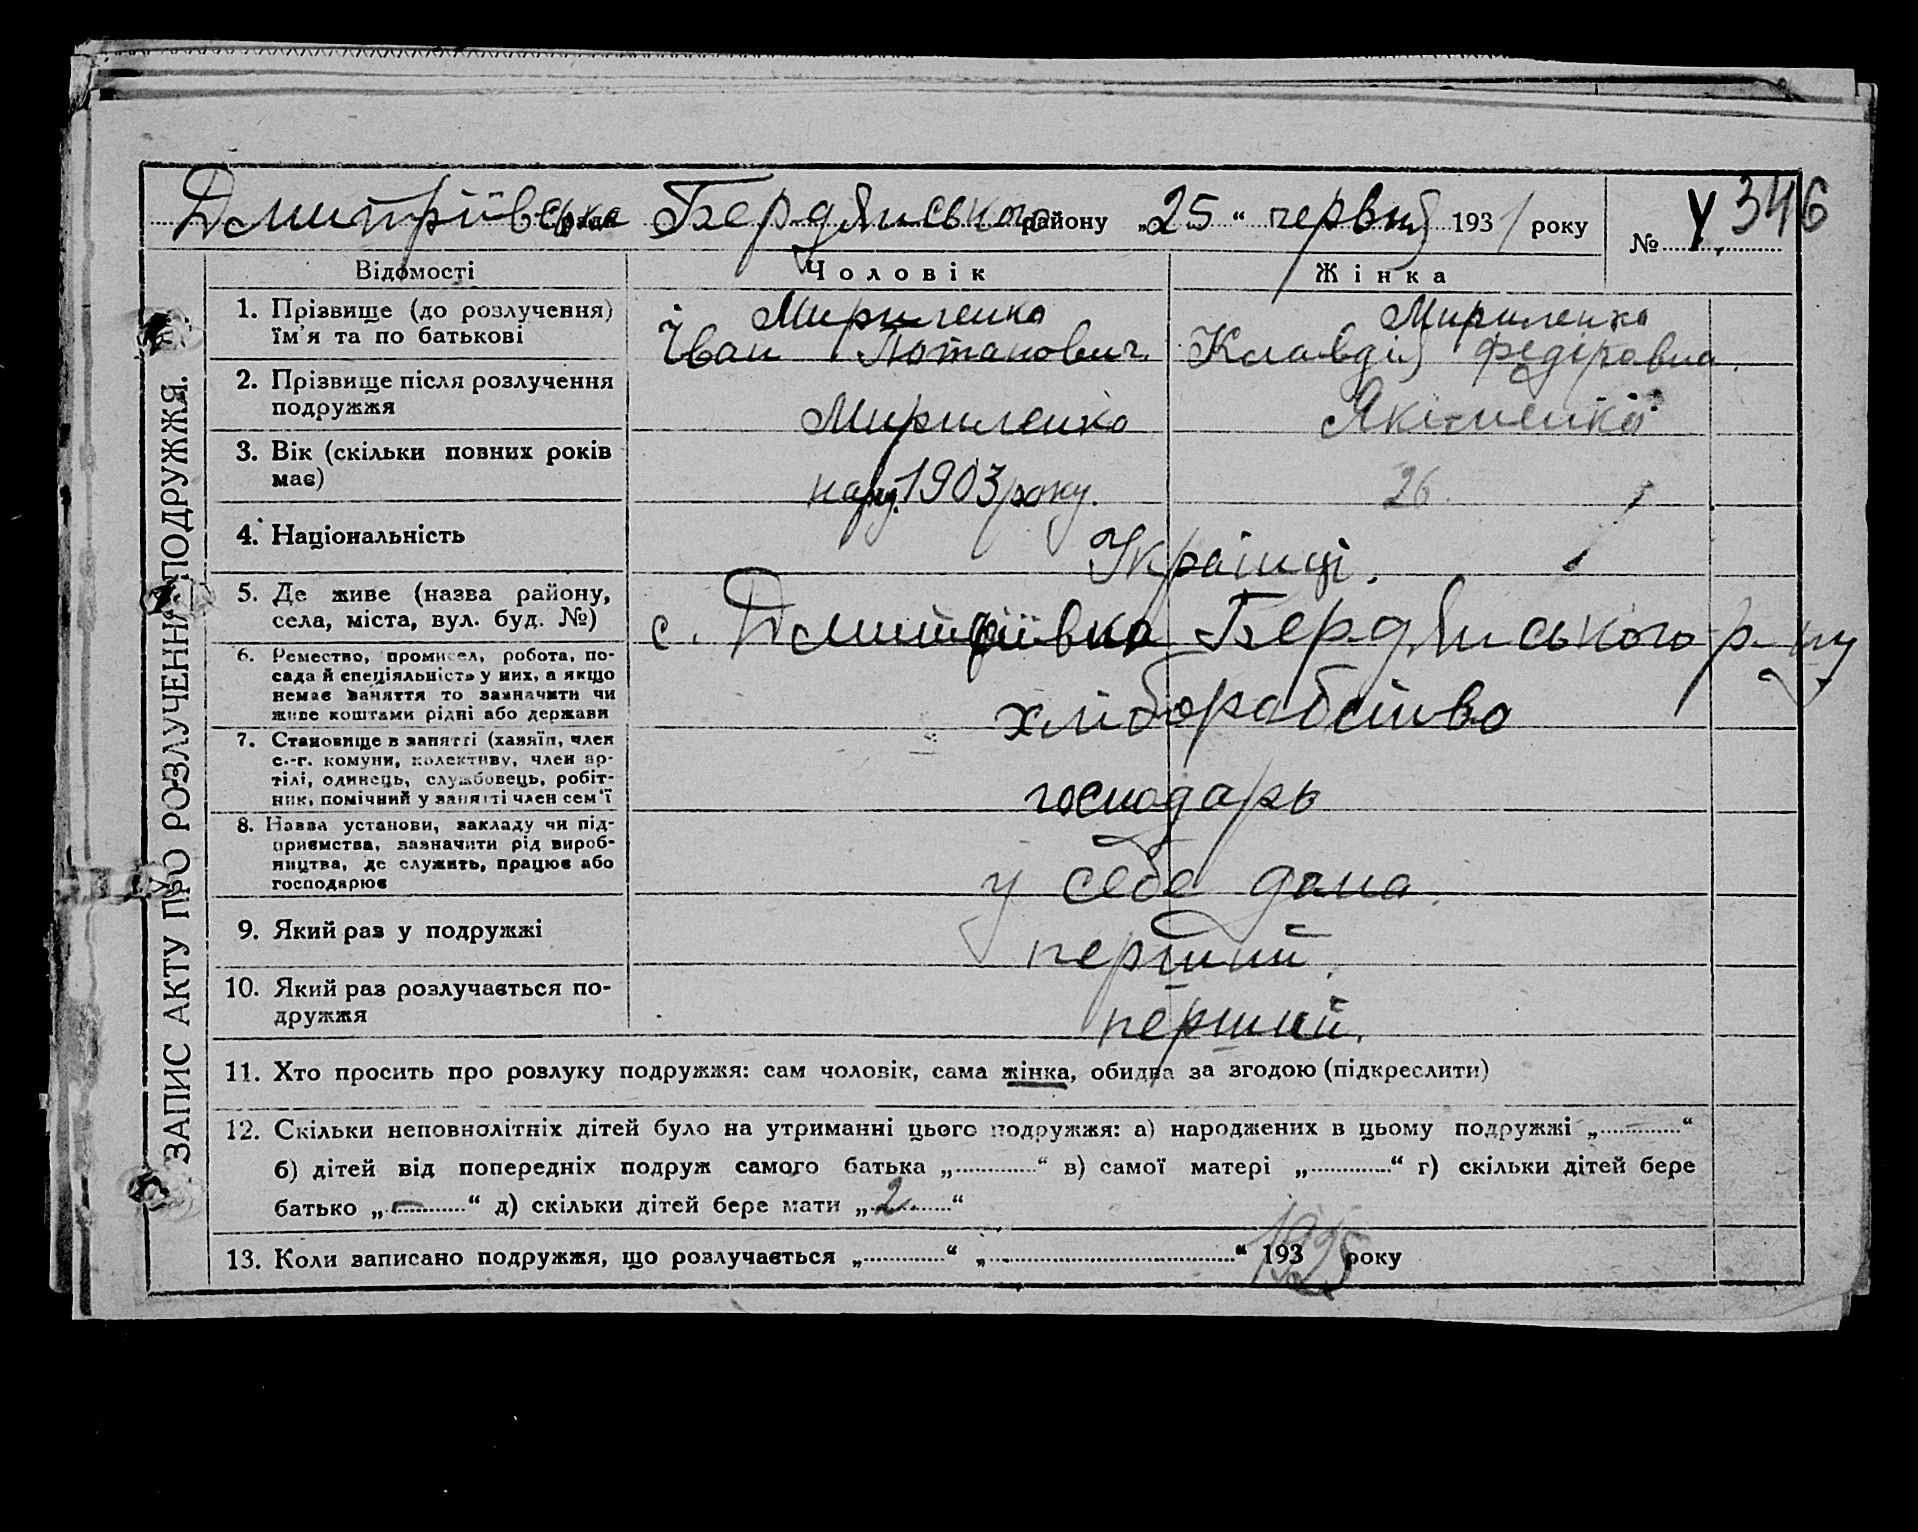 Дмитрівська рада Бердянського району „25“ червня 1931 року
№ 346
ЗАПИС АКТУ ПРО РОЗЛУЧЕННЯ ПОДРУЖЖЯ.
Відомості Чоловік Жінка
1. Прізвище (до розлучення) їм'я та по батькові
Мириленко
Іван Потапович
Мириленко
Клавдія Федіровна
2. Прізвище після розлучення подружжя
Мириленко
Якіменко
3. Вік (скільки повних років має)
нар. 1903 року.
26.
4. Національність
Українці.
5. Де живе (назва району, села, міста, вул. буд. №)
с. Дмитрівка Бердянського р-ну
6. Ремество, промисел, робота, по-
сада й спеціяльність у них, а якщо
немає заняття то зазначити чи
живе коштами рідні або держави
хліборобство
7. Становище в занятті (хазяїн, член
с.-г. комуни, колективу, член ар-
тілі, одинець, службовець, робіт-
ник, помічний у занятті член сем'ї
господарь
8. Назва установи, закладу чи під-
приємства, зазначити рід вироб-
ництва, де служить, працює або
господарює
у себе дома.
9. Який раз у подружжі
перший.
10. Який раз розлучається по-
дружжя
перший.
11. Хто просить про розлуку подружжя: сам чоловік, сама жінка, обидва за згодою (підкреслити)
12. Скільки неповнолітніх дітей було на утриманні цього подружжя: а) народжених в цьому подружжі „ “
б) дітей від попередніх подруж самого батька „ “ в) самої матері „ “ г) скільки дітей бере
батько „–“ д) скільки дітей бере мати „2“
13. Коли записано подружжя, що розлучається „ “ „ “ 193 року
1925